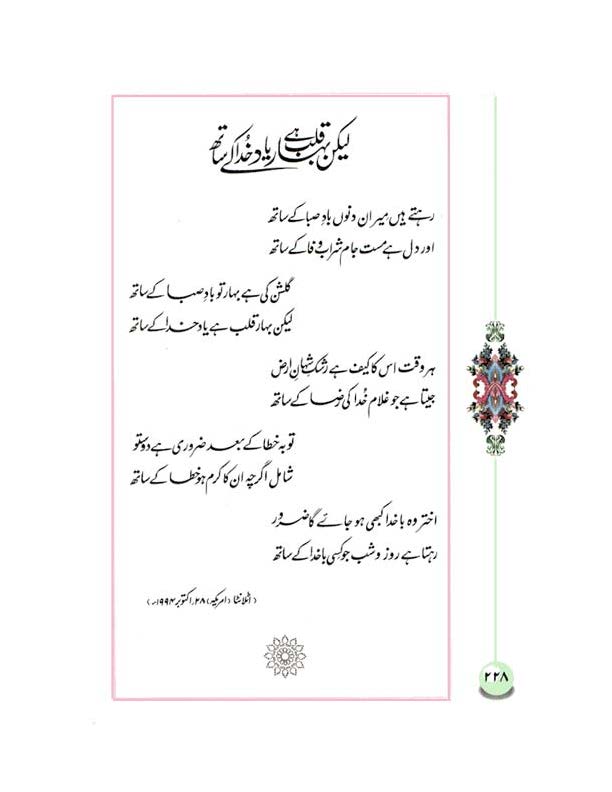 لیکن بہارِ قلب ہے یادِ خُدا کے ساتھ
رہتے ہیں میر ان دنوں بادِ صبا کے ساتھ
اور دل ہے مست جام شراب وفا کے ساتھ
گلشن کی ہے بہار تو بادِ صبا کے ساتھ
لیکن بہار قلب ہے یاد خدا کے ساتھ
ہر وقت اس کا کیف ہے رشکِ شہانِ ارض
جیتا ہے جو غلام خُدا کی رضا کے ساتھ
توبہ خطا کے بعد ضروری ہے دوستو
شامل اگرچہ ان کا کرم ہو خطا کے ساتھ
اختر وہ باخدا کبھی ہو جائے گا ضرور
رہتا ہے روز و شب جو کسی باخدا کے ساتھ
(اٹلانٹا (امریکہ) ۲۸؍ اکتوبر ۱۹۹۴ء)
۲۲۸